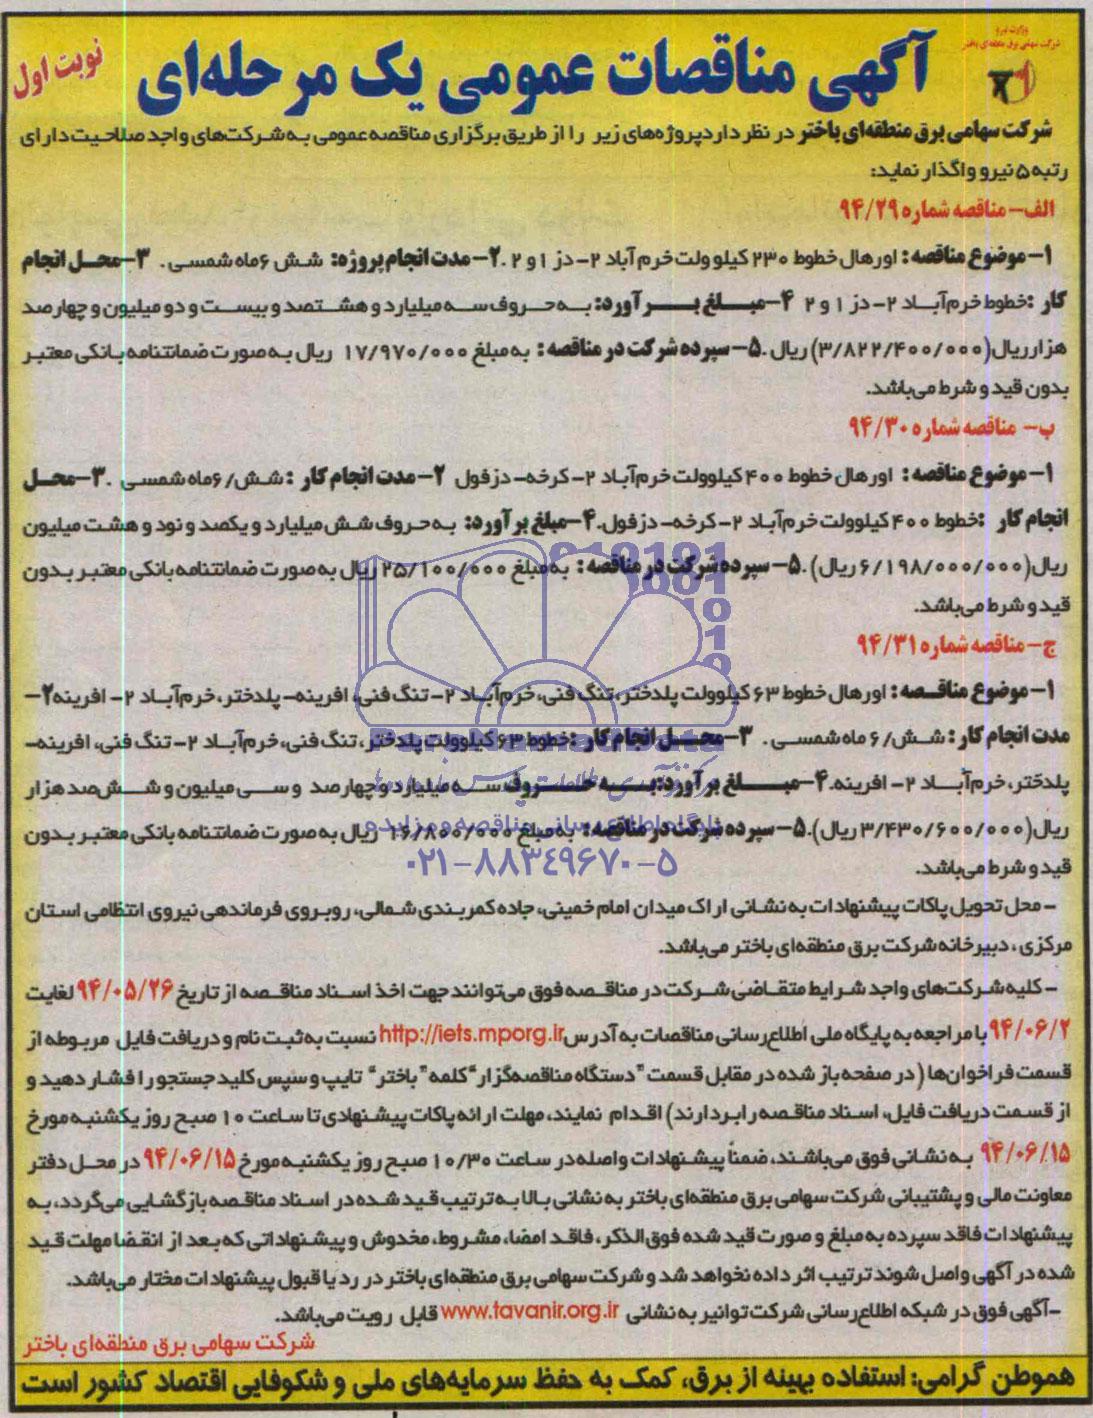 وزارت نیرو
شرکت سهامی برق منطقه‌ای باختر
نوبت اول
آگهی مناقصات عمومی یک مرحله‌ای
شرکت سهامی برق منطقه‌ای باختر در نظر دارد پروژه‌های زیر را از طریق برگزاری مناقصه عمومی به شرکت‌های واجد صلاحیت دارای
رتبه ۵ نیرو واگذار نماید:
الف- مناقصه شماره ۹۴/۲۹
۱- موضوع مناقصه: اورهال خطوط ۲۳۰ کیلو ولت خرم آباد ۲- دز ۱ و ۲ .۲- مدت انجام پروژه: شش ۶ماه شمسی. ۳- محل انجام
کار: خطوط خرم‌آباد ۲- دز ۱ و ۲ ۴- مبلغ برآورد: به حروف سه میلیارد و هشتصد و بیست و دو میلیون و چهارصد
هزار ریال(۳/۸۲۲/۴۰۰/۰۰۰) ریال .۵- سپرده شرکت در مناقصه: به مبلغ ۱۷/۹۷۰/۰۰۰ ریال به صورت ضمانتنامه بانکی معتبر
بدون قید و شرط می‌باشد.
ب- مناقصه شماره ۹۴/۳۰
۱- موضوع مناقصه: اورهال خطوط ۴۰۰ کیلوولت خرم‌آباد ۲- کرخه- دزفول ۲- مدت انجام کار: شش/ ۶ماه شمسی .۳- محل
انجام کار: خطوط ۴۰۰ کیلوولت خرم‌آباد ۲- کرخه- دزفول.۴- مبلغ برآورد: به حروف شش میلیارد و یکصد و نود و هشت میلیون
ریال(۶/۱۹۸/۰۰۰/۰۰۰ ریال) .۵- سپرده شرکت در مناقصه: به مبلغ ۲۵/۱۰۰/۰۰۰ ریال به صورت ضمانتنامه بانکی معتبر بدون
قید و شرط می‌باشد.
ج- مناقصه شماره ۹۴/۳۱
۱- موضوع مناقصه: اورهال خطوط ۶۳ کیلوولت پلدختر، تنگ فنی، خرم‌آباد ۲- تنگ فنی، افرینه- پلدختر، خرم‌آباد ۲- افرینه ۲-
مدت انجام کار: شش/ ۶ ماه شمسی. ۳- محل انجام کار: خطوط ۶۳ کیلوولت پلدختر، تنگ فنی، خرم‌آباد ۲- تنگ فنی، افرینه-
پلدختر، خرم‌آباد ۲- افرینه.۴- مبلغ برآورد: به حروف سه میلیارد و چهارصد و سی میلیون و شش‌صد هزار
ریال(۳/۴۳۰/۶۰۰/۰۰۰ ریال).۵- سپرده شرکت در مناقصه: به مبلغ ۱۶/۸۰۰/۰۰۰ ریال به صورت ضمانتنامه بانکی معتبر بدون
پایگاه اطلاع رسانی مناقصه و مزایده
۰۲۱-۸۸۳۴۹۶۷۰-۵
قید و شرط می‌باشد.
- محل تحویل پاکات پیشنهادات به نشانی اراک میدان امام خمینی، جاده کمربندی شمالی، روبروی فرماندهی نیروی انتظامی استان
مرکزی، دبیرخانه شرکت برق منطقه‌ای باختر می‌باشد.
- کلیه شرکت‌های واجد شرایط متقاضی شرکت در مناقصه فوق می‌توانند جهت اخذ اسناد مناقصه از تاریخ ۹۴/۰۵/۲۶ لغایت
۹۴/۰۶/۲ با مراجعه به پایگاه ملی اطلاع‌رسانی مناقصات به آدرس http://iets.mporg.ir نسبت به ثبت نام و دریافت فایل مربوطه از
قسمت فراخوان‌ها (در صفحه باز شده در مقابل قسمت "دستگاه مناقصه‌گزار "کلمه "باختر" تایپ و سپس کلید جستجو را فشار دهید و
از قسمت دریافت فایل، اسناد مناقصه را بردارند) اقدام نمایند، مهلت ارائه پاکات پیشنهادی تا ساعت ۱۰ صبح روز یکشنبه مورخ
۹۴/۰۶/۱۵ به نشانی فوق می‌باشند، ضمناً پیشنهادات واصله در ساعت ۱۰/۳۰ صبح روز یکشنبه مورخ ۹۴/۰۶/۱۵ در محل دفتر
معاونت مالی و پشتیبانی شرکت سهامی برق منطقه‌ای باختر به نشانی بالا به ترتیب قید شده در اسناد مناقصه بازگشایی می‌گردد، به
پیشنهادات فاقد سپرده به مبلغ و صورت قید شده فوق‌الذکر، فاقد امضا، مشروط، مخدوش و پیشنهاداتی که بعد از انقضا مهلت قید
شده در آگهی واصل شوند ترتیب اثر داده نخواهد شد و شرکت سهامی برق منطقه‌ای باختر در رد یا قبول پیشنهادات مختار می‌باشد.
-آگهی فوق در شبکه اطلاع‌رسانی شرکت توانیر به نشانی www.tavanir.org.ir قابل رویت می‌باشد.
شرکت سهامی برق منطقه‌ای باختر
هموطن گرامی: استفاده بهینه از برق، کمک به حفظ سرمایه‌های ملی و شکوفایی اقتصاد کشور است